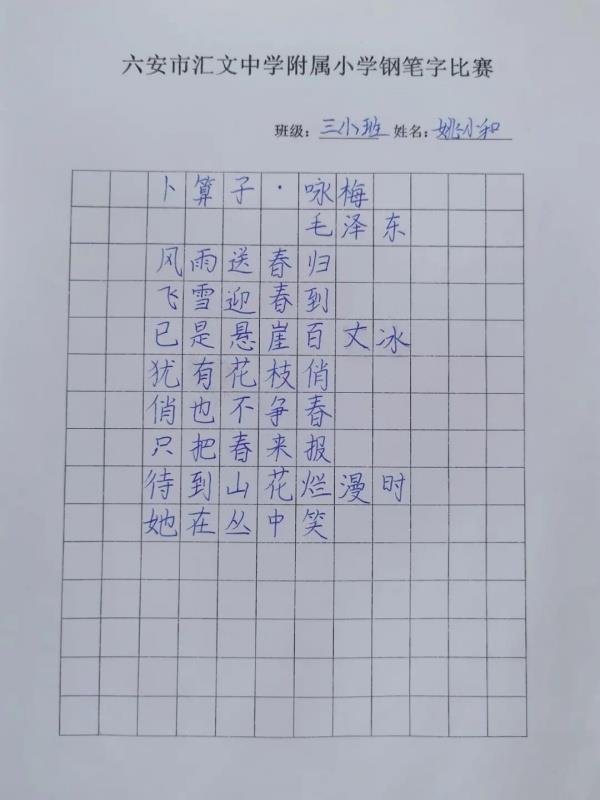 六安市汇文中学附属小学钢笔字比赛
班级：三小班 姓名：姚小和
卜算子·咏梅
毛泽东
风雨送春归
飞雪迎春到
已是悬崖百丈冰
犹有花枝俏
俏也不争春
只把春来报
待到山花烂漫时
她在丛中笑